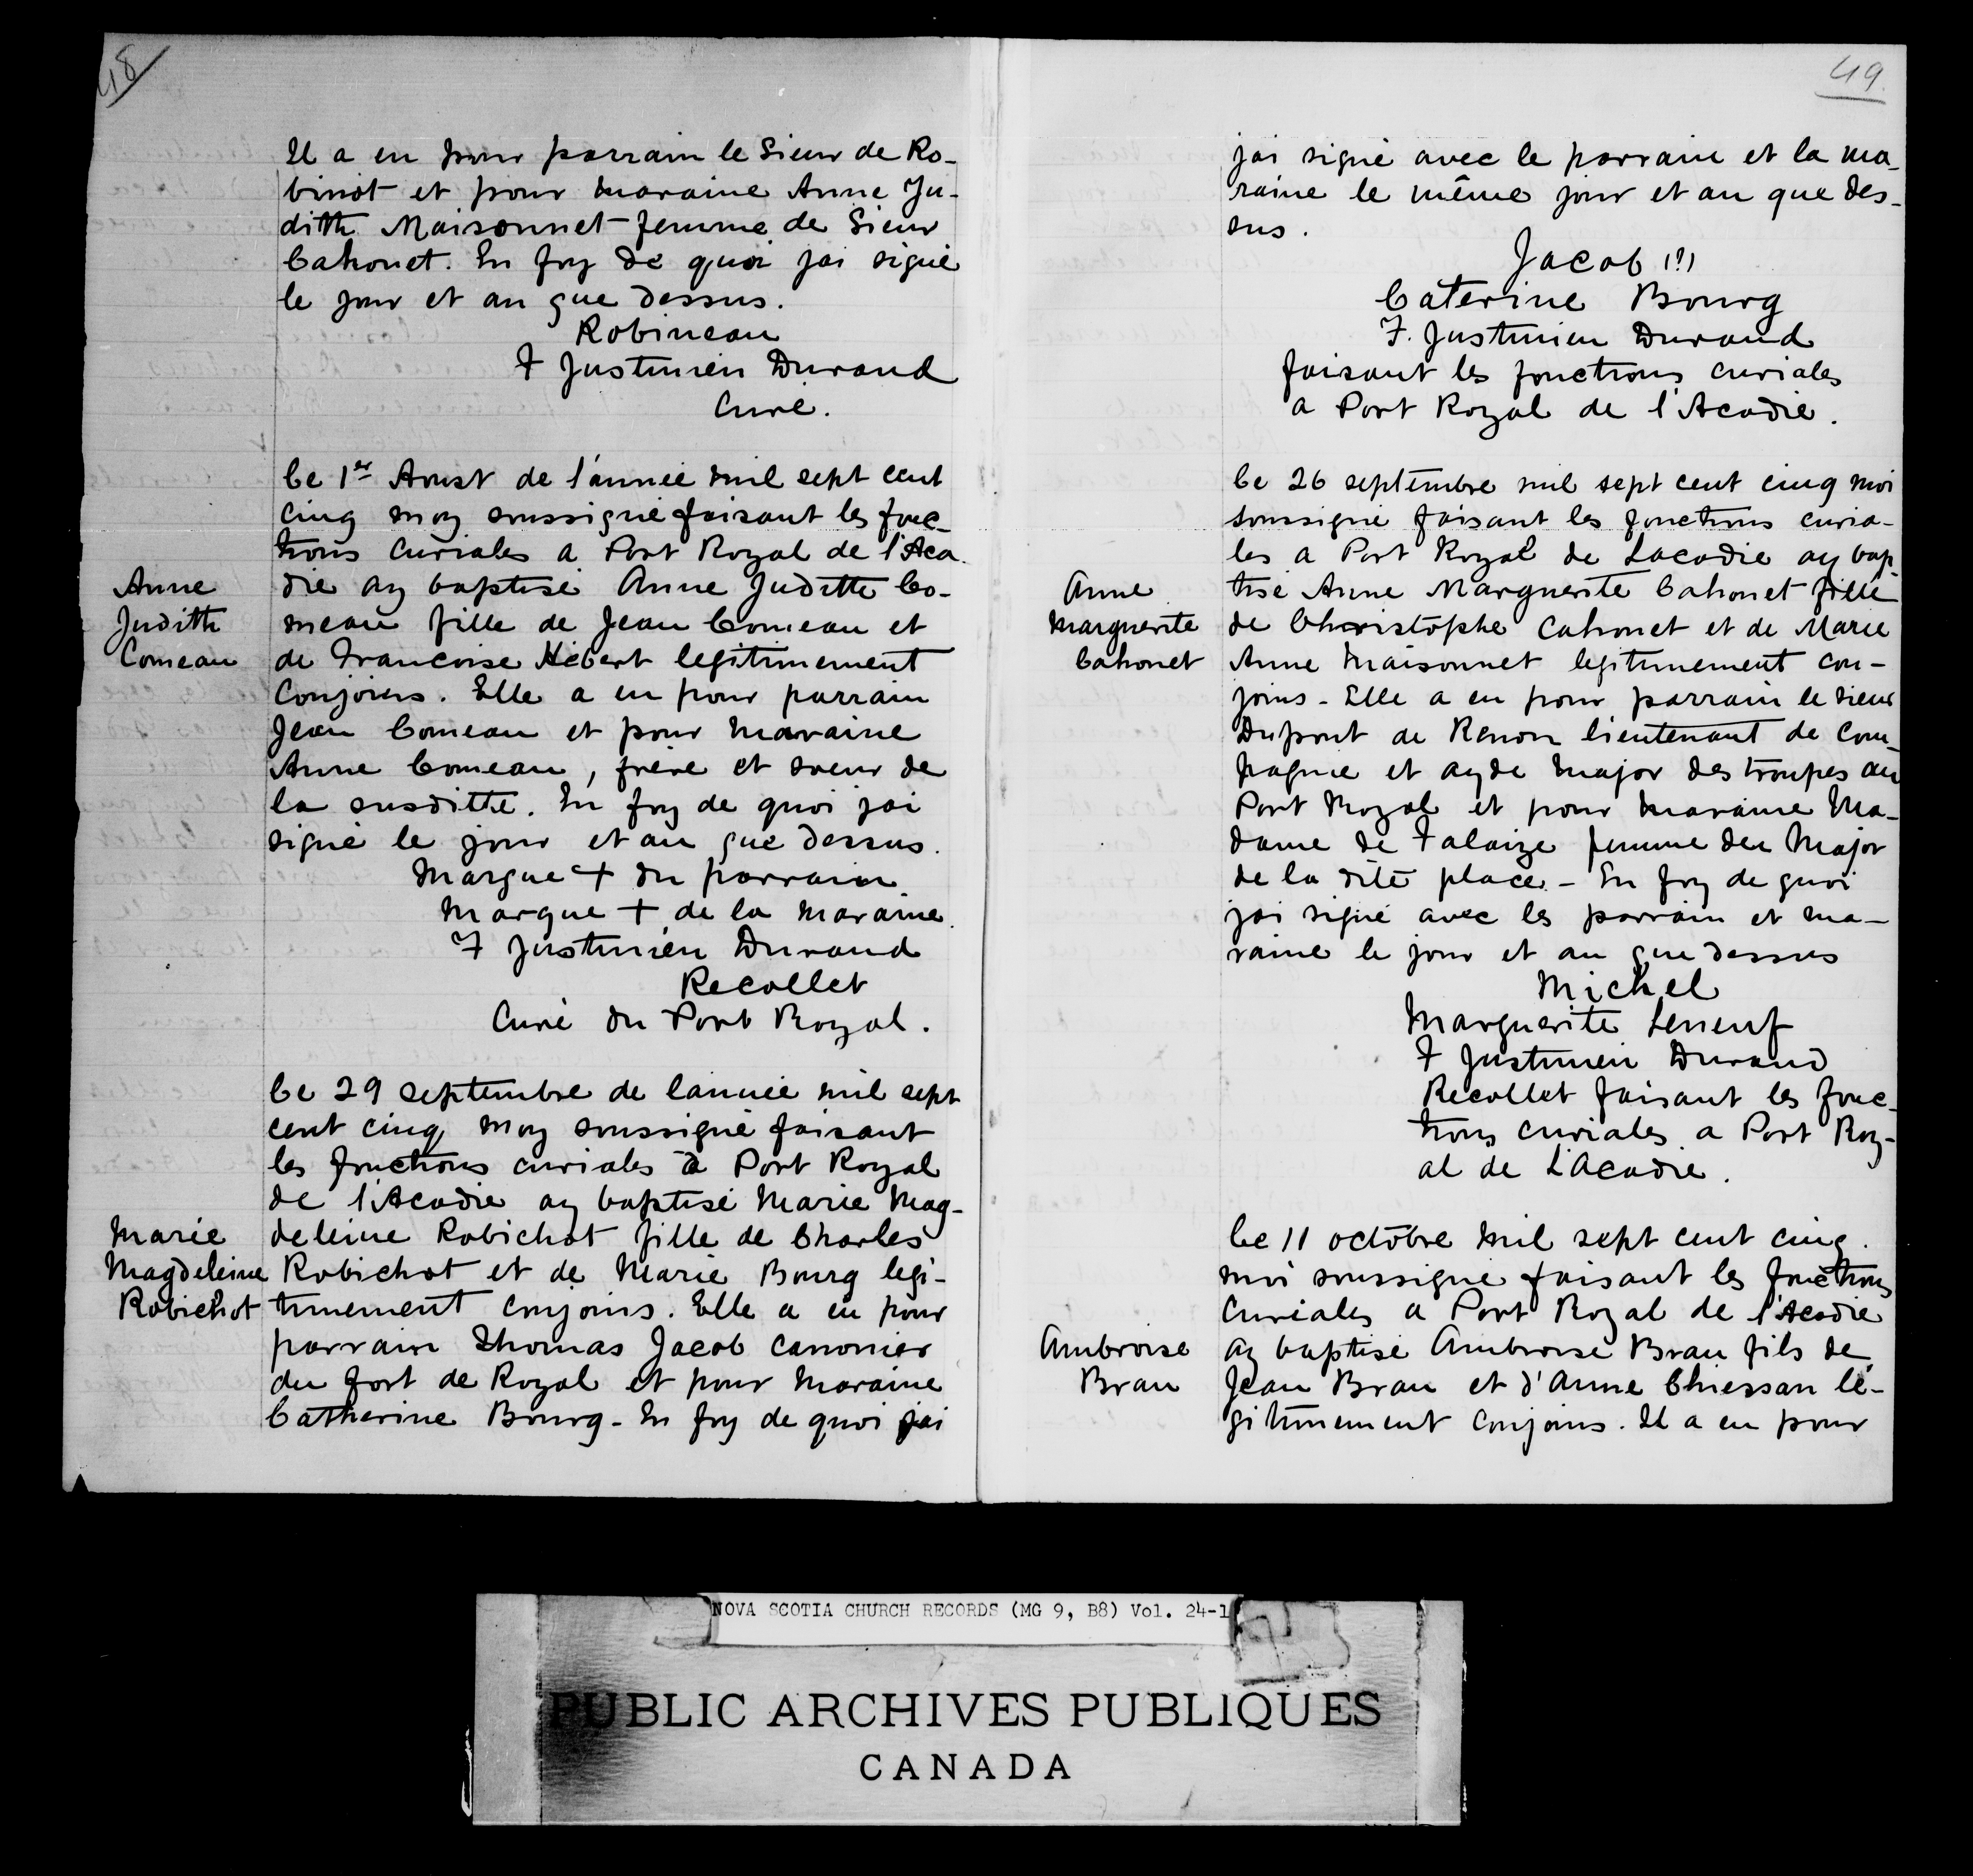 48
Il a eu pour parrain le Sieur de Ro-
binot et pour maraine Anne Ju-
dith Maisonnet femme de Sieur
Cahouet. En foy de quoi jai signé
le jour et an que dessus.
Robineau
F Justinien Durand
Curé.
Le 1er Aoust de l'année mil sept cent
cinq moy soussigné faisant les fonc-
tions curiales a Port Royal de l'Aca
Anne
Judith
Comeau
die ay baptisé Anne Juditte Co-
meau fille de Jean Comeau et
de Francoise Hébert legitimement
conjoins. Elle a eu pour parrain
Jean Comeau et pour maraine
Anne Comeau, frère et soeur de
la susditte. En foy de quoi jai
signé le jour et an que dessus.
Marque + du parrain
Marque + de la maraine.
F Justinien Durand
Recollet
Curé du Port Royal.
Le 29 septembre de lannée mil sept
cent cinq moy soussigné faisant
les fonctions curiales à Port Royal
de l'Acadie ay baptisé Marie Mag-
Marie
Magdeleine
Robichot
deleine Robichot fille de Charles
Robichot et de Marie Bourg legi-
timement conjoins. Elle a eu pour
parrain Thomas Jacob canonier
du fort de Royal et pour maraine
Catherine Bourg - En foy de quoi jai
49
jai signé avec le parrain et la ma-
raine le même jour et an que des-
sus.
Jacob (?)
Caterine Bourg
F. Justinien Durand
faisant les fonctions curiales
a Port Royal de l'Acadie.
Le 26 septembre mil sept cent cinq moi
soussigné faisant les fonctions curia-
les a Port Royal de Lacadie ay bap-
Anne
Marguerite
Cahouet
tisé Anne Marguerite Cahouet fille
de Christophe Cahouet et de Marie
Anne Maisonnet legitimement con-
joins - Elle a eu pour parrain le sieur
Dupont de Renon lieutenant de com-
pagnie et ayde major des troupes au
Port Royal et pour maraine Ma-
dame de Falaize femme du Major
de la dite place - En foy de quoi
jai signé avec les parrain et ma-
raine le jour et an que dessus
Michel
Marguerite Leneuf
F Justinien Durand
Recollet faisant les fonc-
tions curiales a Port Roy-
al de L'Acadie.
Le 11 octobre mil sept cent cinq.
moi soussigné faisant les fonctions
curiales a Port Royal de l'Acadie
Ambroise
Brau
ay baptisé Ambroise Brau fils de
Jean Brau et d'Anne Chiessan lé-
gitimement conjoins. Il a eu pour
NOVA SCOTIA CHURCH RECORDS (MG 9, B8) Vol. 24-1
PUBLIC ARCHIVES PUBLIQUES
CANADA